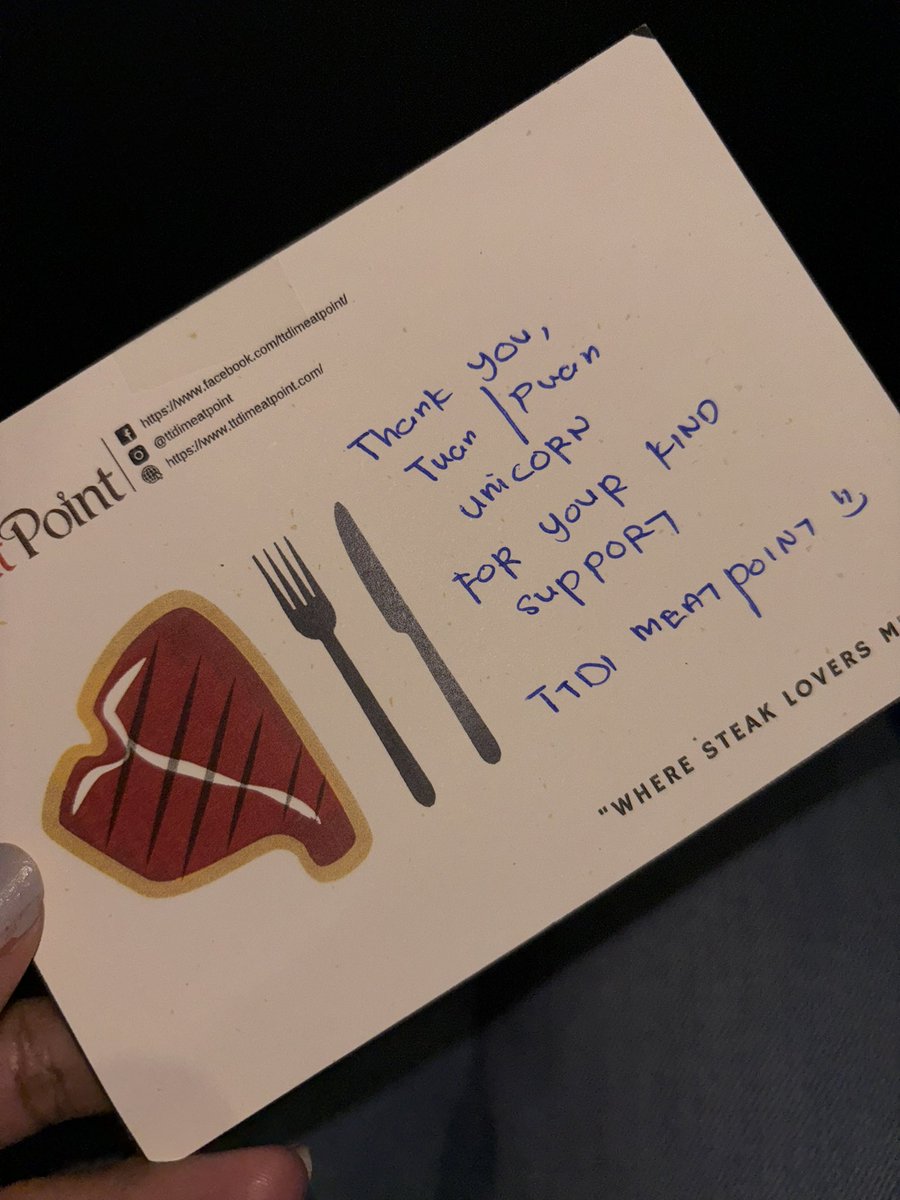 Point
https://www.facebook.com/ttdimeatpoint/
@ttdimeatpoint
https://www.ttdimeatpoint.com/
Thank you,
Tuan / Puan
UNICORN
FOR YOUR KIND
SUPPORT
TTDI MEATPOINT
"WHERE STEAK LOVERS